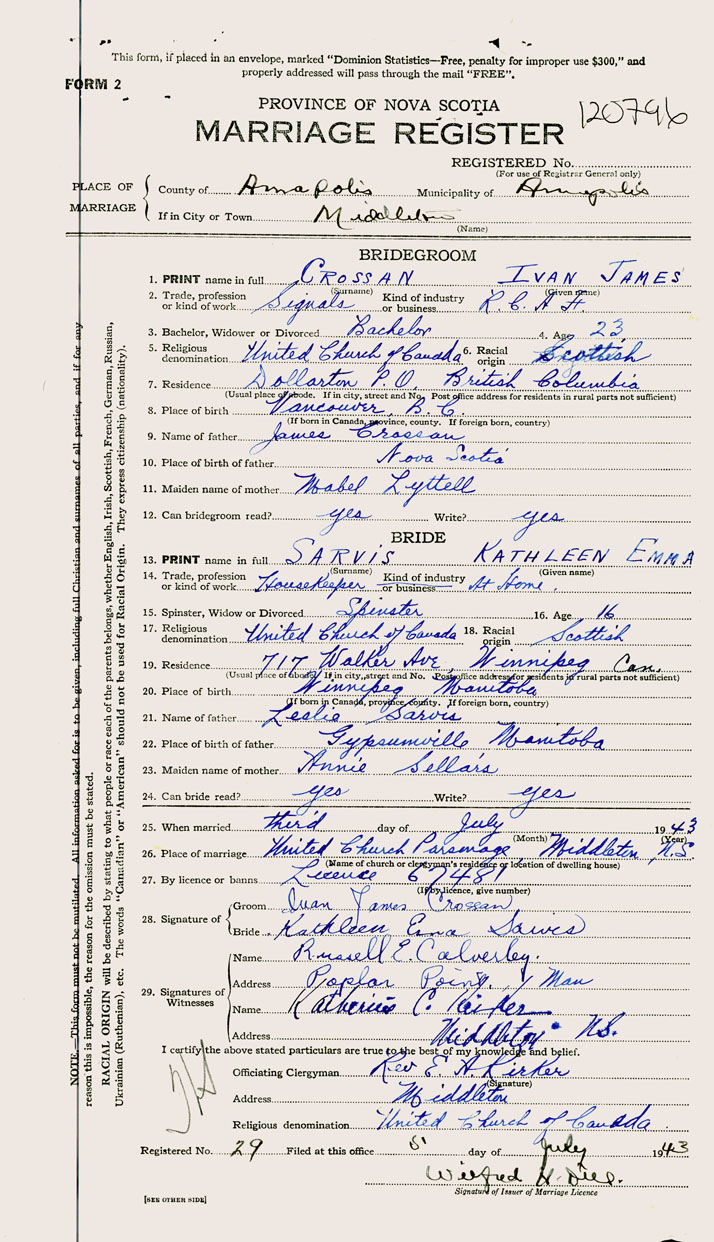 This form, if placed in an envelope, marked "Dominion Statistics—Free, penalty for improper use $300," and
properly addressed will pass through the mail "FREE".
FORM 2
PROVINCE OF NOVA SCOTIA
120796
MARRIAGE REGISTER
REGISTERED No.
(For use of Registrar General only)
PLACE OF MARRIAGE
County of Annapolis Municipality of Annapolis
If in City or Town Middleton
(Name)
BRIDEGROOM
1. PRINT name in full CROSSAN IVAN JAMES
(Surname) (Given name)
2. Trade, profession or kind of work Signals Kind of industry or business R.C.A.F.
3. Bachelor, Widower or Divorced Bachelor 4. Age 23
5. Religious denomination United Church of Canada 6. Racial origin Scottish
7. Residence Dollarton P.O. British Columbia
(Usual place of abode. If in city, street and No. Post office address for residents in rural parts not sufficient)
8. Place of birth Vancouver, B.C.
(If born in Canada, province, county. If foreign born, country)
9. Name of father James Crossan
10. Place of birth of father Nova Scotia
11. Maiden name of mother Mabel Lyttell
12. Can bridegroom read? yes Write? yes
BRIDE
13. PRINT name in full SARVIS KATHLEEN EMMA
(Surname) (Given name)
14. Trade, profession or kind of work Housekeeper Kind of industry or business At Home.
15. Spinster, Widow or Divorced Spinster 16. Age 16
17. Religious denomination United Church of Canada 18. Racial origin Scottish
19. Residence 717 Walker Ave, Winnipeg Can.
(Usual place of abode. If in city, street and No. Post office address for residents in rural parts not sufficient)
20. Place of birth Winnipeg Manitoba
(If born in Canada, province, county. If foreign born, country)
21. Name of father Leslie Sarvis
22. Place of birth of father Gypsumville Manitoba
23. Maiden name of mother Annie Sellars
24. Can bride read? yes Write? yes
25. When married third day of July 1943
(Month) (Year)
26. Place of marriage United Church Parsonage, Middleton, N.S
(Name of church or clergyman's residence or location of dwelling house)
27. By licence or banns Licence 67481
(If by licence, give number)
28. Signature of
Groom Ivan James Crossan
Bride Kathleen Emma Sarvis
29. Signatures of Witnesses
Name Russell E. Calverley.
Address Poplar Point, Man
Name Katherine C. Kirker
Address Middleton N.S.
I certify the above stated particulars are true to the best of my knowledge and belief.
Officiating Clergyman Rev E. A. Kirker
(Signature)
Address Middleton
Religious denomination United Church of Canada
Registered No. 29 Filed at this office 5 day of July 1943
Wilfred H.
Signature of Issuer of Marriage Licence
[SEE OTHER SIDE]
NOTE.—This form must not be mutilated. All information asked for is to be given, including full Christian and surnames of all parties, and if for any
reason this is impossible, the reason for the omission must be stated.
RACIAL ORIGIN will be described by stating to what people or race each of the parents belongs, whether English, Irish, Scottish, French, German, Russian,
Ukrainian (Ruthenian), etc. The words "Canadian" or "American" should not be used for Racial Origin. They express citizenship (nationality).